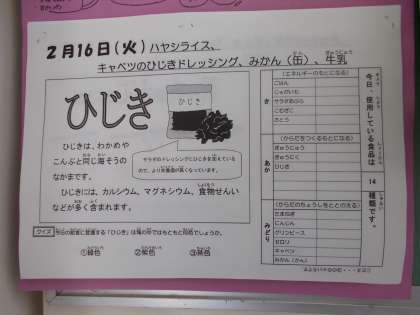 2月16日(火) ハヤシライス、
キャベツのひじきドレッシング、みかん(缶)、牛乳
ひじき
ひじき
ひじきは、わかめや
こんぶと同じ海そうの
なかまです。
ひじきには、カルシウム、マグネシウム、食物せんい
などが多く含まれます。
サラダのドレッシングにひじきを加えている
ので、より栄養価が高くなっています。
クイズ 今日の給食に登場する「ひじき」は海の中ではもともと何色でしょうか。
①緑色 ②紫色 ③茶色
今日、使用している食品は 14 種類です。
き
(エネルギーのもとになる)
ごはん
じゃがいも
サラダあぶら
こむぎこ
さとう
あか
(からだをつくるもとになる)
ぎゅうにゅう
ぎゅうにく
ひじき
みどり
(からだのちょうしをととのえる)
たまねぎ
にんじん
グリンピース
セロリ
キャベツ
みかん(かん)